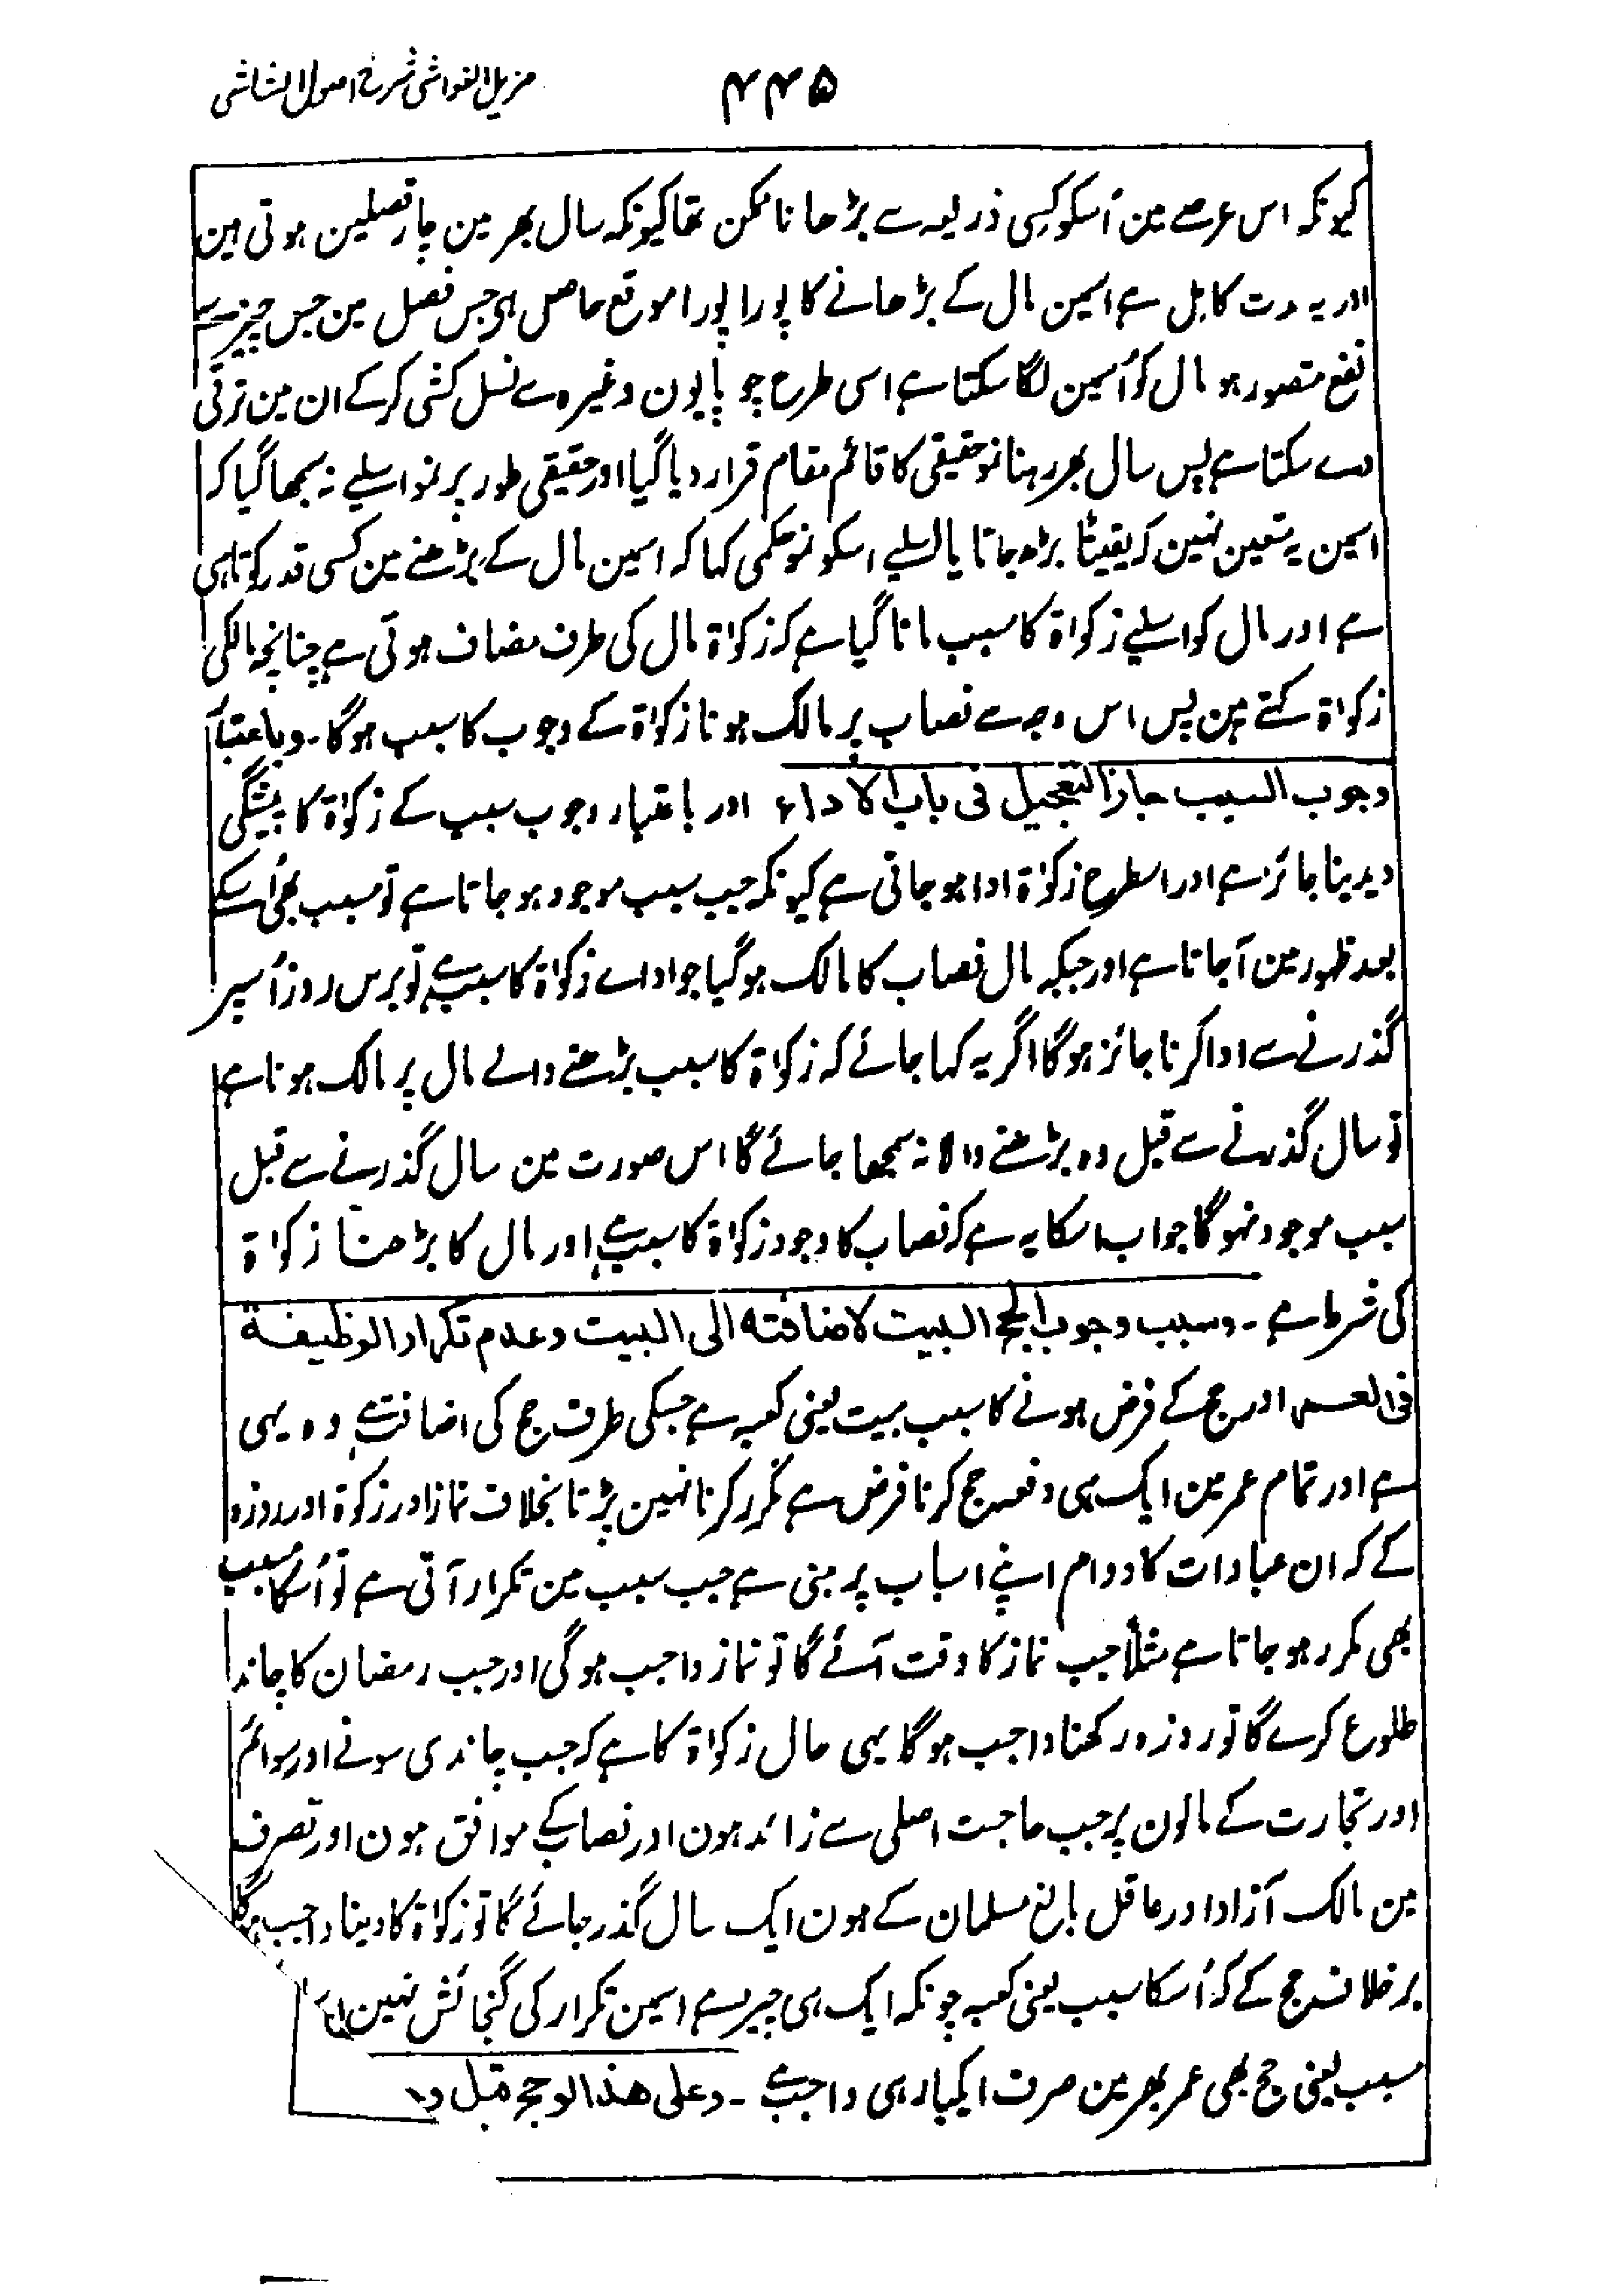 ۴۴۵ مزیل الغواشی شرح اصول الشاشی
کیونکہ اس عرصے مین اُسکو کسی ذریعہ سے بڑھانا ممکن تھا کیونکہ سال بھر مین چار فصلین ہوتی ہین
اور یہ مدت کامل ہے اسمین مال کے بڑھانے کا پورا پورا موقع حاصل ہی جس فصل مین جس چیز سے
نفع متصور ہو مال کو اُسمین لگا سکتا ہے اسی طرح چوپایون وغیرہ سے نسل کشی کرکے ان مین ترقی
دے سکتا ہے پس سال بھر رہنا نمو حقیقی کا قائم مقام قرار دیا گیا اور حقیقی طور پر نمو اسلیے نہ سمجھا گیا کہ
اسمین یہ متعین نہین کہ یقیناً بڑھ جاتا یا اسلیے اسکو نمو حکمی کہا کہ اسمین مال کے بڑھنے مین کسی قدر کوتاہی
ہے اور مال کو اسلیے زکواۃ کا سبب مانا گیا ہے کہ زکواۃ مال کی طرف مضاف ہوتی ہے چنانچہ مالکی
زکواۃ کہتے ہین پس اس وجہ سے نصاب پر مالک ہونا زکواۃ کے وجوب کا سبب ہوگا ۔ وباعتبار
وجوب السبب جاز التعجیل فی باب الاداء اور باعتبار وجوب سبب کے زکواۃ کا پیشگی
دیدینا جائز ہے اور اسطرح زکواۃ ادا ہو جاتی ہے کیونکہ جب سبب موجود ہو جاتا ہے تو مسبب بھی اُسکے
بعد ظہور مین آجاتا ہے اور جبکہ مال نصاب کا مالک ہوگیا جو اداے زکواۃ کا سبب ہے تو برس روز اُسپر
گذرنے سے ادا کرنا جائز ہوگا اگر یہ کہا جائے کہ زکواۃ کا سبب بڑھنے والے مال پر مالک ہونا ہے
تو سال گذرنے سے قبل وہ بڑھنے والا نہ سمجھا جائے گا اس صورت مین سال گذرنے سے قبل
سبب موجود نہوگا جواب اسکا یہ ہے کہ نصاب کا وجود زکواۃ کا سبب ہے اور مال کا بڑھنا زکواۃ
کی شرط ہے ۔ وسبب وجوب الحج البیت لاضافتہ الی البیت وعدم تکرار الوظیفۃ
فی العمر اور حج کے فرض ہونے کا سبب بیت یعنی کعبہ ہے جسکی طرف حج کی اضافت ہے وہ یہی
ہے اور تمام عمر مین ایک ہی دفعہ حج کرنا فرض ہے مکرر کرنا نہین پڑتا بخلاف نماز اور زکوۃ اور روزہ
کے کہ ان عبادات کا دوام اپنے اسباب پر مبنی ہے جب سبب مین تکرار آتی ہے تو اُسکا مسبب
بھی مکرر ہو جاتا ہے مثلاً جب نماز کا وقت آئے گا تو نماز واجب ہوگی اور جب رمضان کا چاند
طلوع کرے گا تو روزہ رکھنا واجب ہوگا یہی حال زکواۃ کا ہے کہ جب چاندی سونے اور سوائم
اور تجارت کے مالون پر جب حاجت اصلی سے زائد ہون اور نصاب کے موافق ہون اور تصرف
مین مالک آزاد اور عاقل بالغ مسلمان کے ہون ایک سال گذر جائے گا تو زکواۃ کا دینا واجب ہوگا
برخلاف حج کے کہ اُسکا سبب یعنی کعبہ چونکہ ایک ہی چیز ہے اسمین تکرار کی گنجائش نہین
مسبب یعنی حج بھی عمر بھر مین صرف ایکبار ہی واجب ہے ۔ وعلی ھذا لو حج قبل